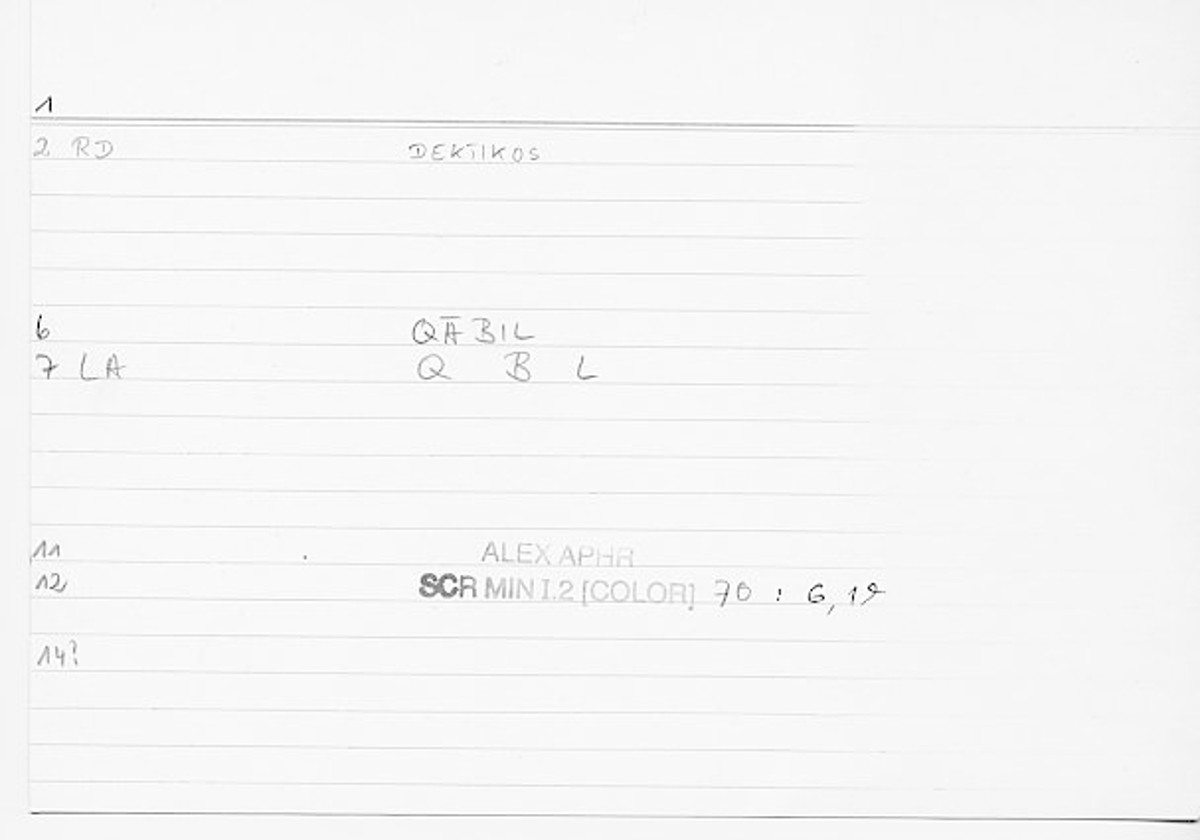 1
2 RD DEKTIKOS
6 QĀBIL
7 LA Q B L
11 ALEX APHR
12 SCR MIN I.2 [COLOR] 70 : 6, 19
14?